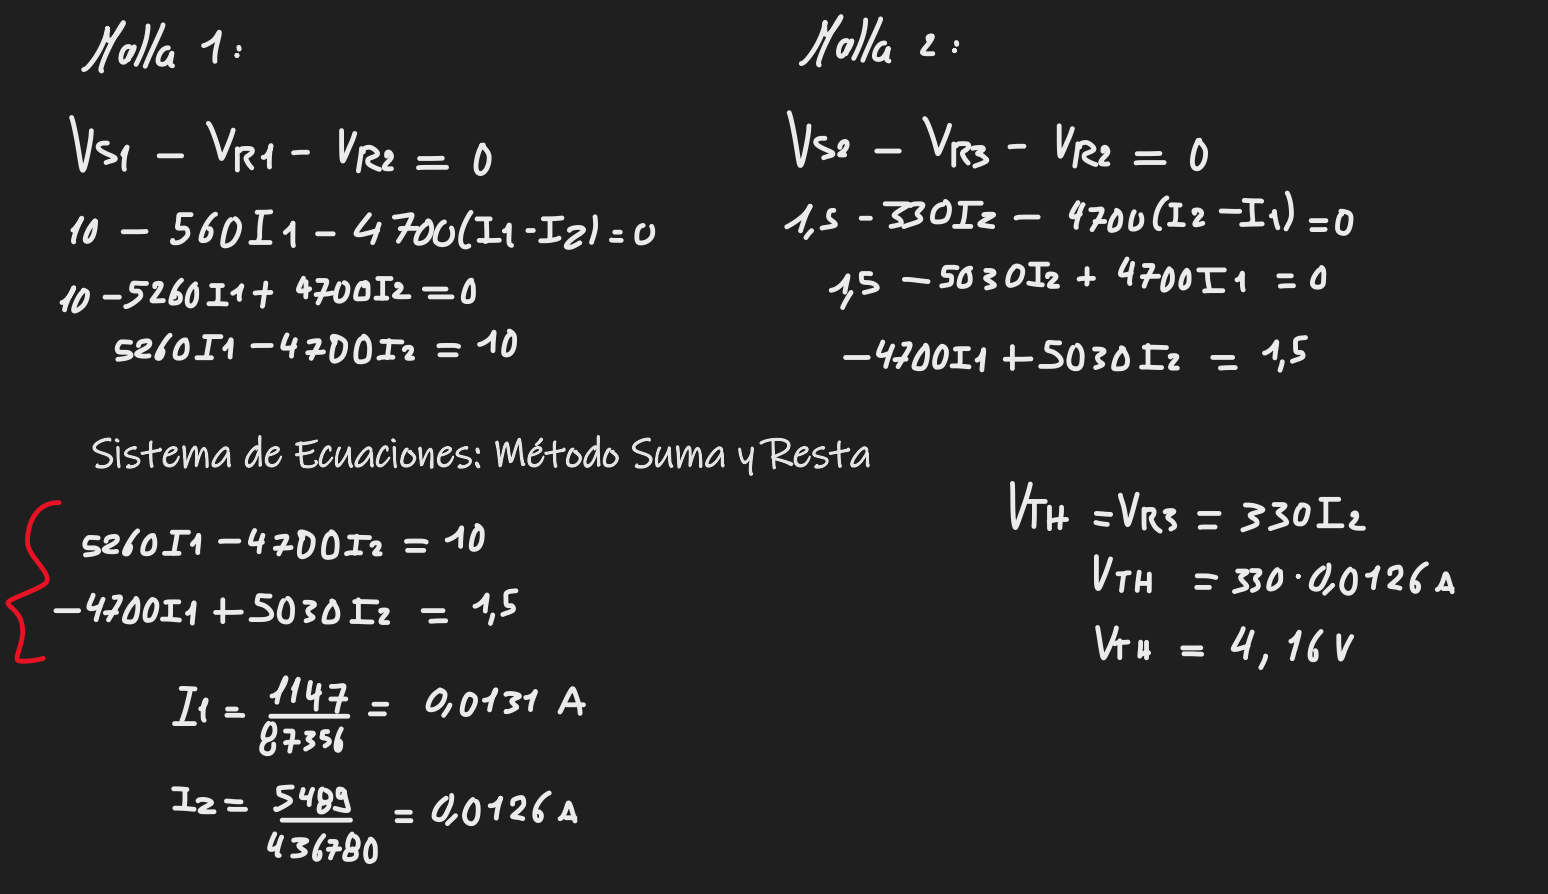 Malla 1:
VS1 - VR1 - VR2 = 0
10 - 560I1 - 4700(I1-I2) = 0
10 - 5260I1 + 4700I2 = 0
5260I1 - 4700I2 = 10
Malla 2:
VS2 - VR3 - VR2 = 0
1,5 - 330I2 - 4700(I2-I1) = 0
1,5 - 5030I2 + 4700I1 = 0
-4700I1 + 5030I2 = 1,5
Sistema de Ecuaciones: Método Suma y Resta
5260I1 - 4700I2 = 10
-4700I1 + 5030I2 = 1,5
I1 = 1147/87356 = 0,0131 A
I2 = 5489/436780 = 0,0126 A
VTH = VR3 = 330I2
VTH = 330·0,0126 A
VTH = 4,16 V